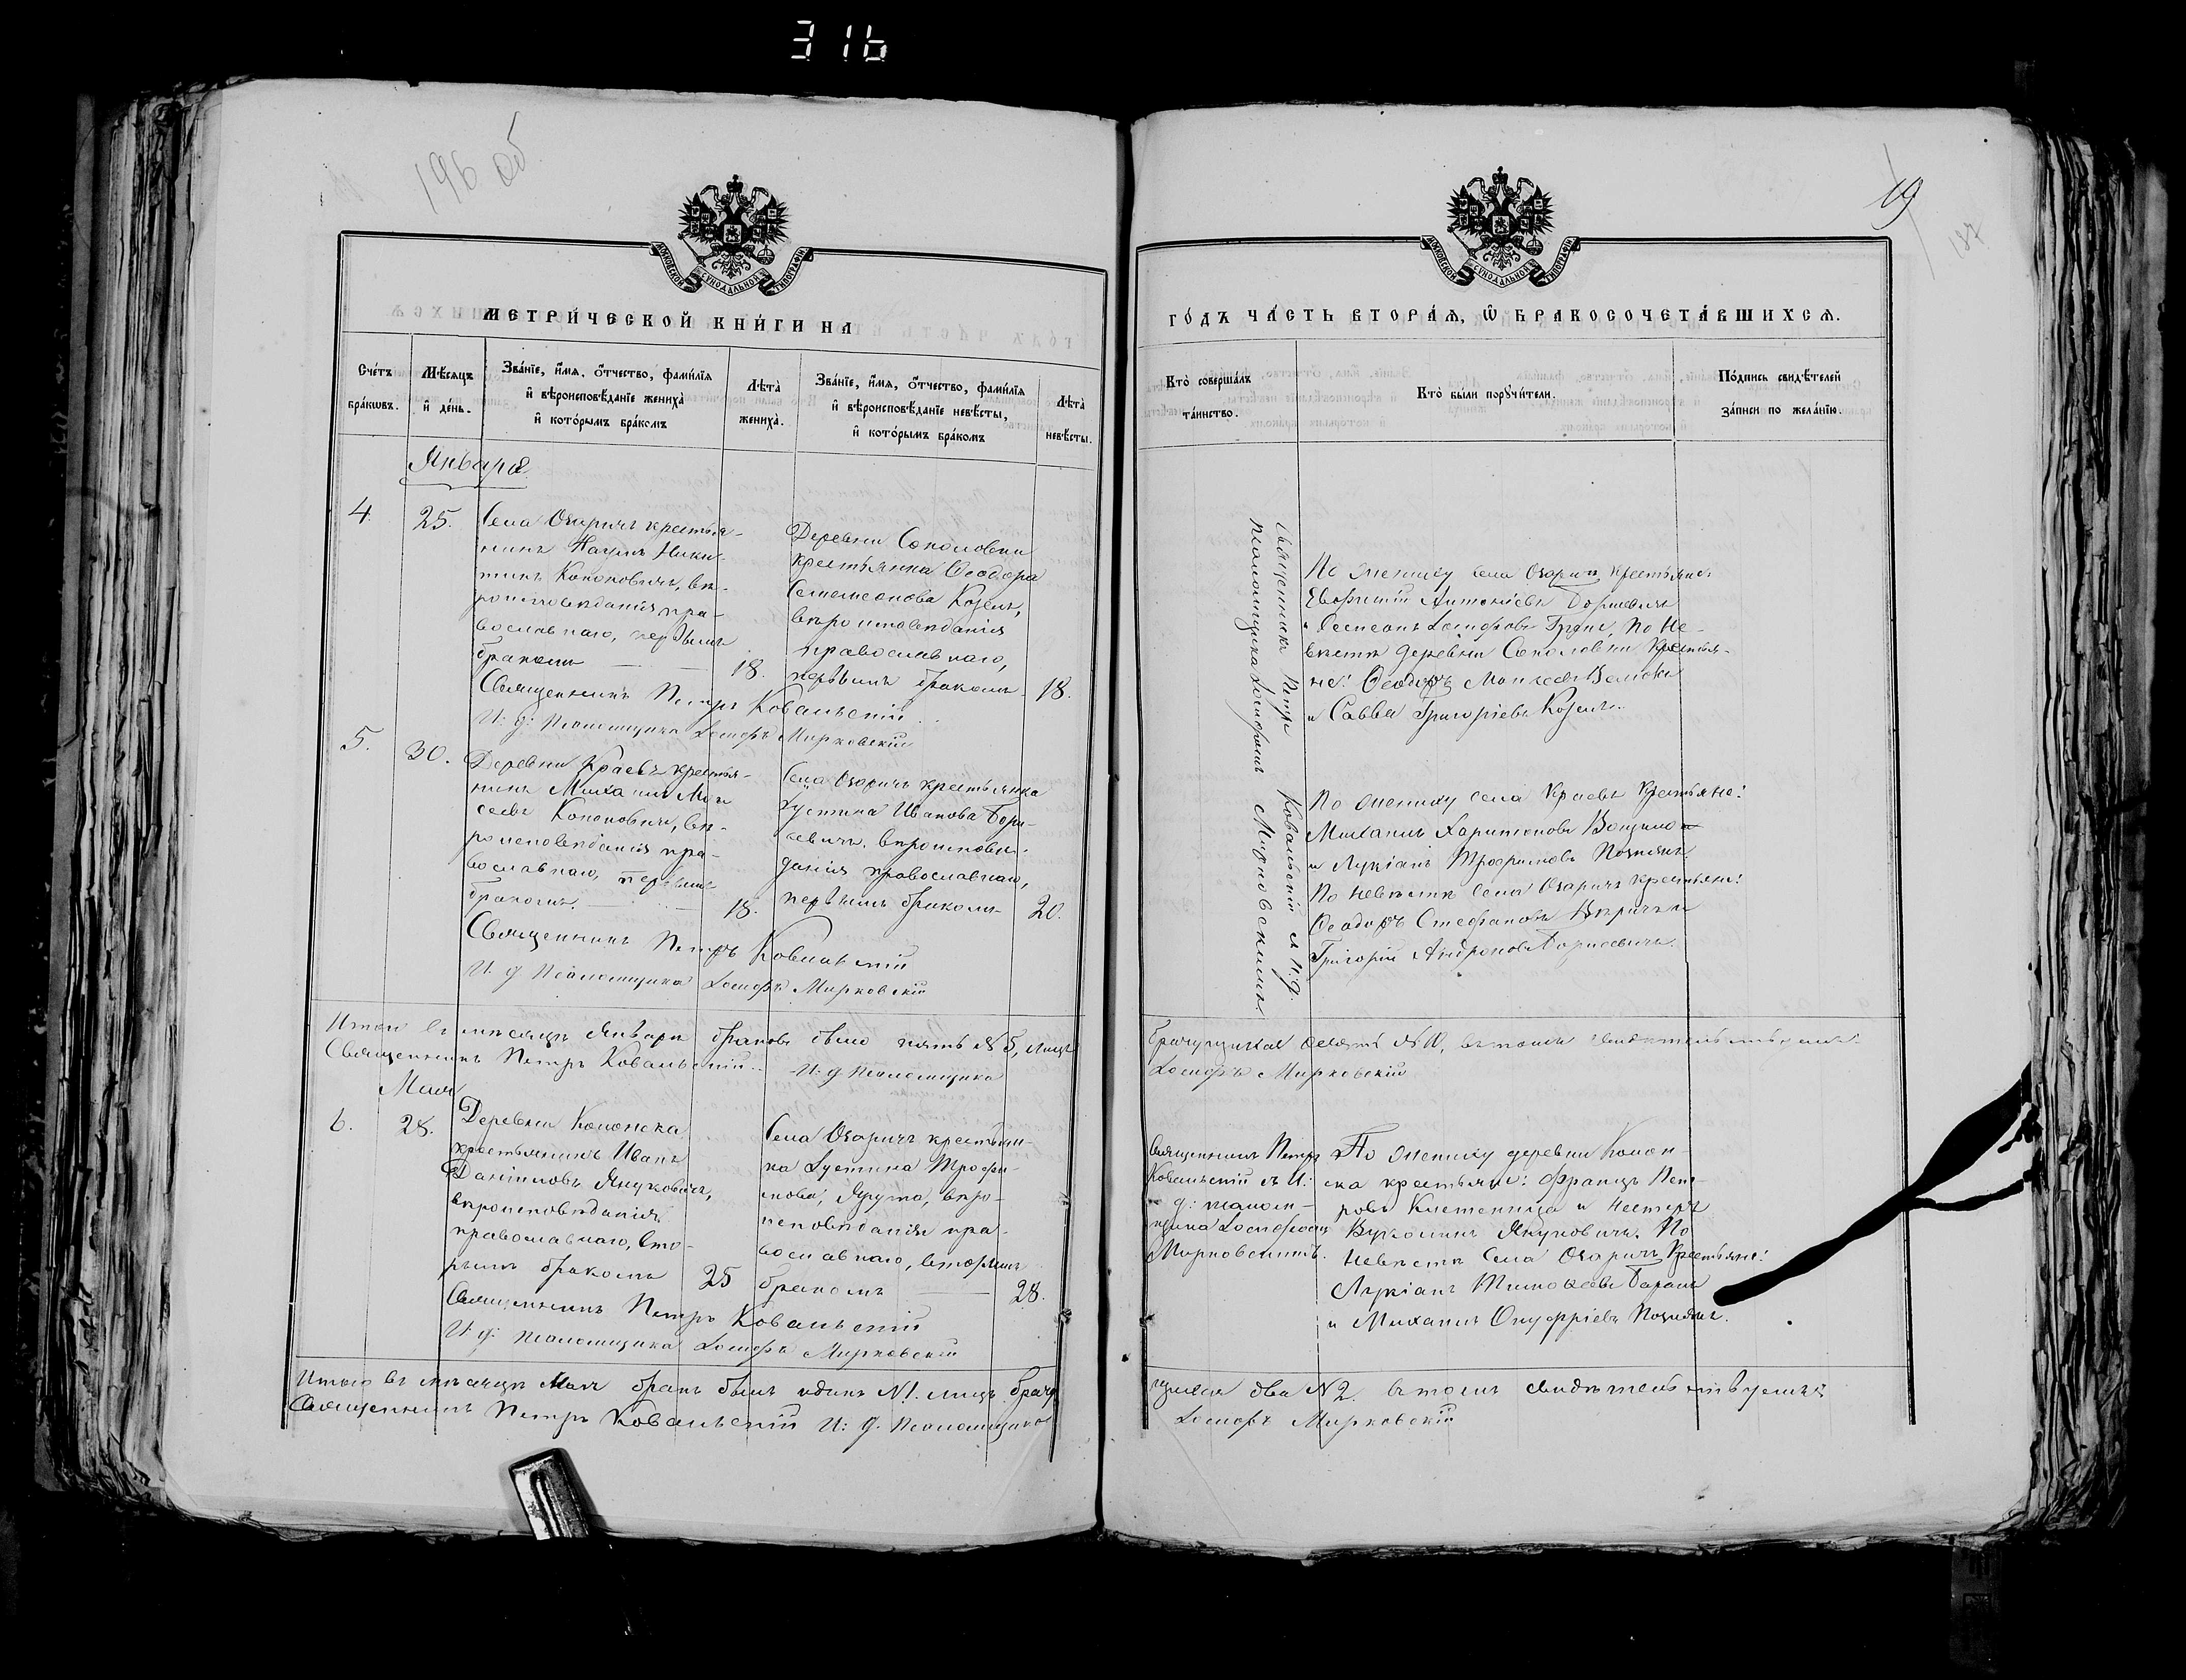 316
196 об
МОСКОВСКОЙ СУНОДАЛЬНОЙ ТИПОГРАФІИ
МЕТРИ́ЧЕСКОЙ КНИ́ГИ НА
Сче́тъ бра́кωвъ.
Мѣ́сяцъ и҆ де́нь.
Зва́нїе, и҆́мя, ѻ҆́тчество, фами́лїя и҆ вѣроисповѣ́данїе жениха̀ и҆ кото́рымъ бра́комъ
Лѣ́та̀ жениха̀.
Зва́нїе, и҆́мя, ѻ҆́тчество, фами́лїя и҆ вѣроисповѣ́данїе невѣ́сты, и҆ кото́рымъ бра́комъ
Лѣ́та̀ невѣ́сты.
Января
4. 25.
Села Озаричъ крестья-
нинъ Наумъ Ники-
тинъ Кононовичъ, вѣ-
роисповѣданія пра-
вославнаго, первымъ
бракомъ
18.
Деревни Соколовки
крестьянка Ѳеодора
Семеонова Козелъ,
вѣроисповѣданія
православнаго,
первымъ бракомъ
18.
Священникъ Петръ Ковальскій
И: д: Псаломщика Іосифъ Мирковскій
5. 30.
Деревни Краевъ крестья-
нинъ Михаилъ Мои-
сеевъ Кононовичъ, вѣ-
роисповѣданія пра-
вославнаго, первымъ
бракомъ.
18.
Села Озаричъ крестьянка
Іустина Иванова Бори-
севичъ, вѣроисповѣ-
данія православнаго,
первымъ бракомъ
20.
Священникъ Петръ Ковальскій
И: д: Псаломщика Іосифъ Мирковскій
Итого въ мѣсяцѣ Январѣ браковъ было пять № 5, лицъ
Священникъ Петръ Ковальскій И: д Псаломщика
Мая
6. 28.
Деревни Конотка
крестьянинъ Иванъ
Даніиловъ Януковичъ,
вѣроисповѣданія
православнаго, вто-
рымъ бракомъ
25
Села Озаричъ крестьян-
ка Іустина Трофи-
мова, вѣро-
исповѣданія пра-
вославнаго, вторымъ
бракомъ
28.
Священникъ Петръ Ковальскій
И: д: Псаломщика Іосифъ Мирковскій
Итого въ мѣсяцѣ Маѣ бракъ былъ одинъ № 1. лицъ брачу
Священникъ Петръ Ковальскій И: д. Псаломщика
19
187
МОСКОВСКОЙ СУНОДАЛЬНОЙ ТИПОГРАФІИ
ГО́ДЪ ЧА́СТЬ ВТОРА́Я, Ѽ БРАКОСОЧЕТА́ВШИХСЯ.
Кто̀ соверша́лъ та́инство.
Кто̀ бы́ли порꙋчи́тели.
По́дпись свидѣ́телей за́писи по жела́нїю.
Священникъ Петръ Ковальскій съ И: д.
псаломщика Іосифомъ Мирковскимъ.
По жениху села Озаричъ крестьяне:
Евфимій Антоніевъ Борисевичъ
По не-
вѣстѣ деревни Соколовки крестья-
не: Ѳеодоръ Моисеевъ
и Савва Григоріевъ Козелъ.
По жениху села Краевъ крестьяне:
Михаилъ Харитоновъ
и Лукіанъ Трофимовъ
По невѣстѣ села Озаричъ крестьяне:
Ѳеодоръ Стефановъ
Григорій Андроновъ Борисевичъ.
брачущихся десять № 10, въ томъ свидѣтельствуемъ
Іосифъ Мирковскій
Священникъ Петръ
Ковальскій съ И:
д: псалом-
щика Іосифомъ
Мирковскимъ.
По жениху деревни Конот-
ка крестьяне: Францъ Пет-
ровъ и Несторъ
Януковичъ. По
невѣстѣ села Озаричъ крестьяне:
Лукіанъ Тимоѳеевъ Баранъ
и Михаилъ Онуфріевъ
щихся два № 2. въ томъ свидѣтельствуемъ
Іосифъ Мирковскій